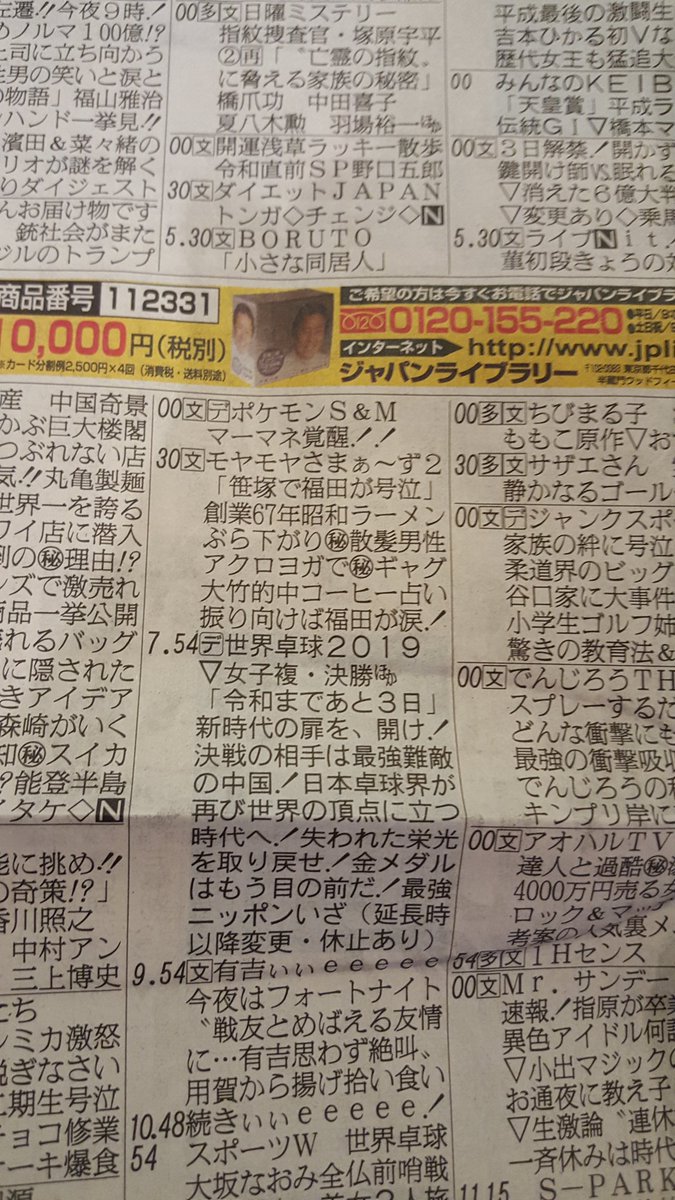 左遷!!今夜9時!
めノルマ100億!?
上司に立ち向かう
性男の笑いと涙と
の物語」福山雅治
ハンドー挙見!!
濱田&菜々緒の
リオが謎を解く
りダイジェスト
んお届け物です
銃社会がまた
ジルのトランプ
00多文日曜ミステリー
指紋捜査官・塚原宇平
②再「〝亡霊の指紋〟
に脅える家族の秘密」
橋爪功 中田喜子
夏八木勲 羽場裕一ほか
00文開運浅草ラッキー散歩
令和直前SP野口五郎
30文ダイエットJAPAN
トンガ◇チェンジ◇N
5.30文BORUTO
「小さな同居人」
平成最後の激闘生
吉本ひかる初Vな
歴代女王も猛追大
00 みんなのKEIB
「天皇賞」平成ラ
伝統GI▽橋本マ
00文3日解禁!開かず
鍵開け師VS.眠れる
▽消えた6億大判
▽変更あり◇乗馬
5.30文ライブNit.
菫初段きょうの対
商品番号 112331
10,000円(税別)
※カード分割例2,500円×4回(消費税・送料別途)
ご希望の方は今すぐお電話でジャパンライブラ
0120-155-220
インターネット http://www.jpli
ジャパンライブラリー
産 中国奇景
かぶ巨大楼閣
つぶれない店
気!!丸亀製麺
世界一を誇る
ワイ店に潜入
倒の㊙理由!?
ンズで激売れ
商品一挙公開
れるバッグ
に隠された
きアイデア
森崎がいく
知㊙スイカ
?能登半島
イタケ◇N
能に挑め!!
の奇策!?」
香川照之
中村アン
三上博史
たち
ンミカ激怒
脱ぎなさい
二期生号泣
チョコ修業
ーキ爆食
00文デポケモンS&M
マーマネ覚醒!!
30文モヤモヤさまぁ~ず2
「笹塚で福田が号泣」
創業67年昭和ラーメン
ぶら下がり㊙散髪男性
アクロヨガで㊙ギャグ
大竹的中コーヒー占い
振り向けば福田が涙!
7.54デ世界卓球2019
▽女子複・決勝ほか
「令和まであと3日」
新時代の扉を、開け!
決戦の相手は最強難敵
の中国!日本卓球界が
再び世界の頂点に立つ
時代へ!失われた栄光
を取り戻せ!金メダル
はもう目の前だ!最強
ニッポンいざ(延長時
以降変更・休止あり)
9.54文有吉ぃぃeeeee
今夜はフォートナイト
〝戦友とめばえる友情
に…有吉思わず絶叫〟
用賀から揚げ拾い食い
10.48続きぃぃeeeee!
54 スポーツW 世界卓球
大坂なおみ全仏前哨戦
00多文ちびまる子
ももこ原作▽お
30多文サザエさん
静かなるゴール
00文デジャンクスポ
家族の絆に号泣
柔道界のビッグ
谷口家に大事件
小学生ゴルフ姉
驚きの教育法&
00文でんじろうTH
スプレーするだ
どんな衝撃にも
最強の衝撃吸収
でんじろうの科
キンプリ岸に
00文アオハルTV
達人と過酷㊙
4000万円売る女
ロック&マッ
考案の人気裏メ
54多文IHセンス
00文Mr.サンデー
速報!指原が卒業
異色アイドル何
▽小出マジックの
お通夜に教え子
▽生激論〝連休
一斉休みは時代
11.15 S-PARK